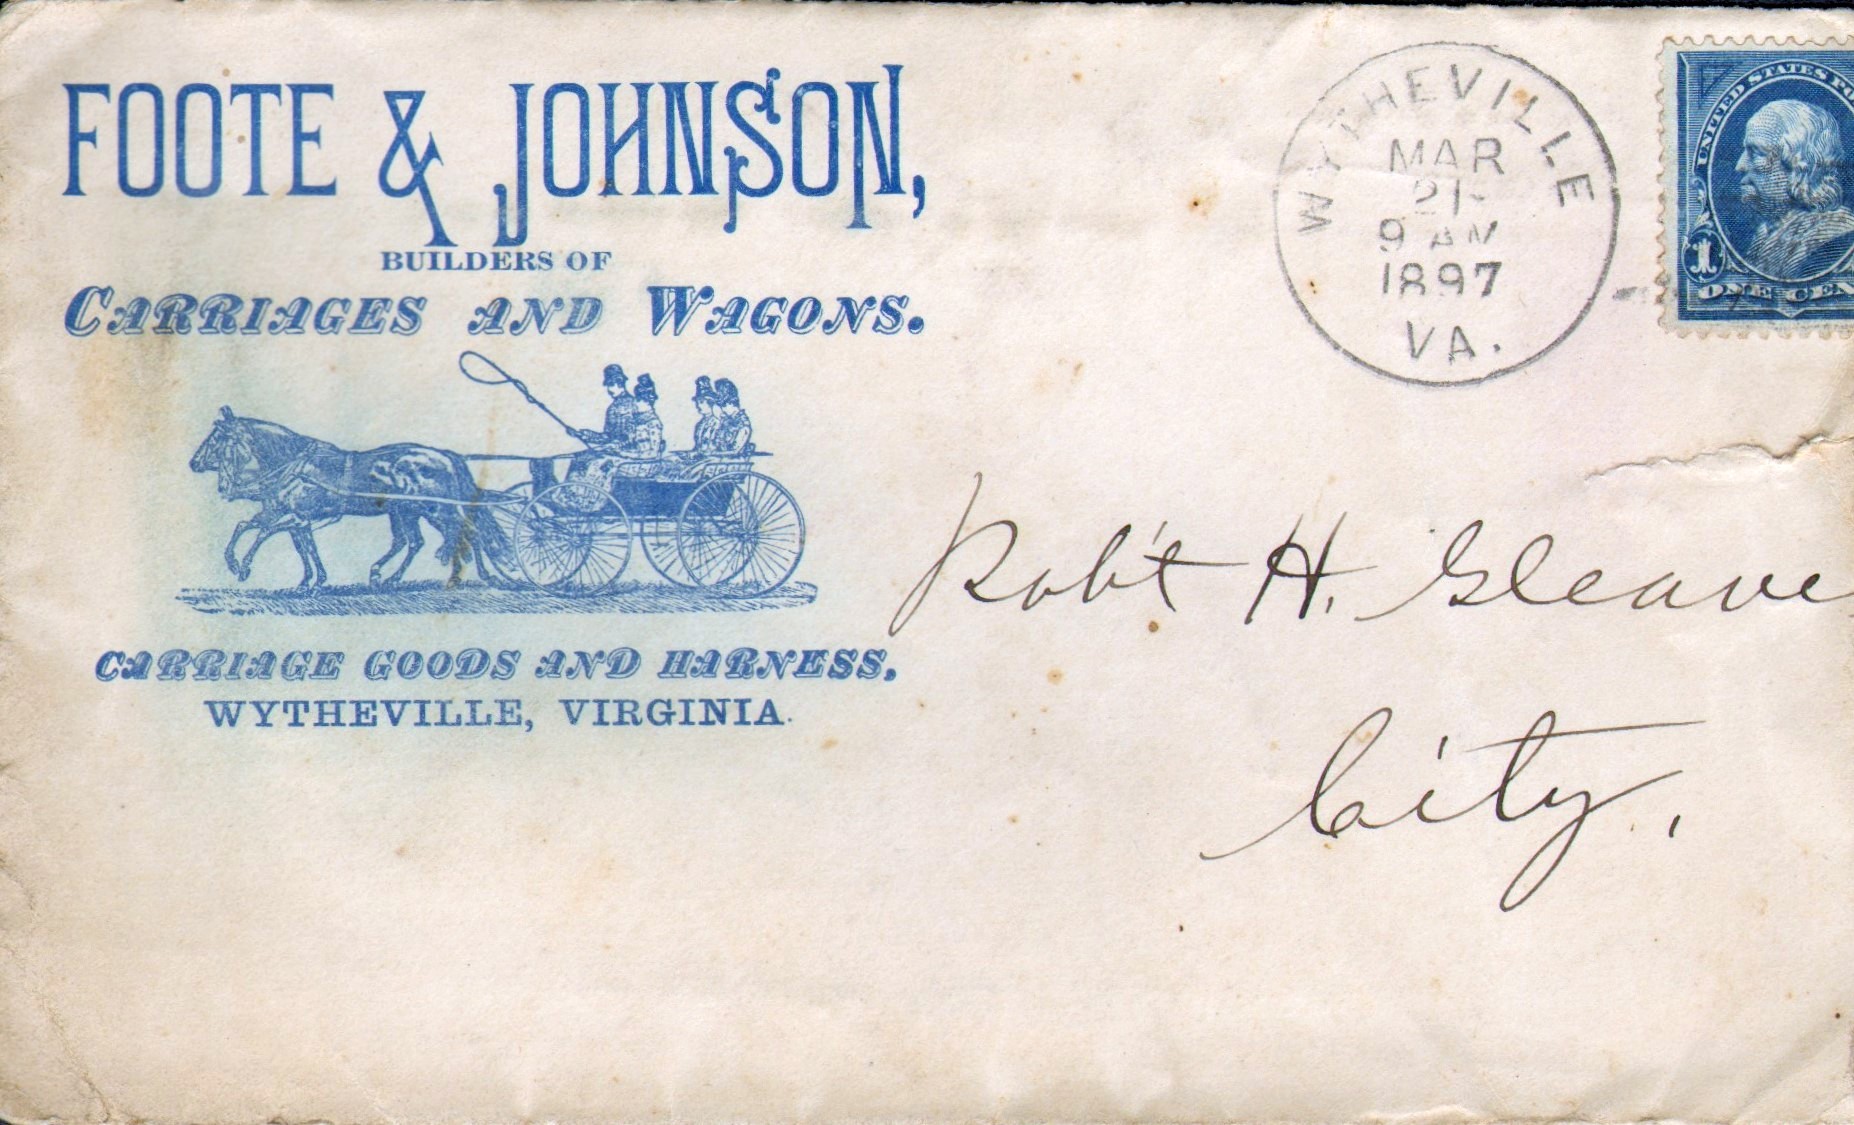 FOOTE & JOHNSON,
BUILDERS OF
CARRIAGES AND WAGONS.
CARRIAGE GOODS AND HARNESS.
WYTHEVILLE, VIRGINIA.
WYTHEVILLE
MAR
21
9 AM
1897
VA.
UNITED STATES PO
1
ONE CEN
Rob't H. Gleave
City,